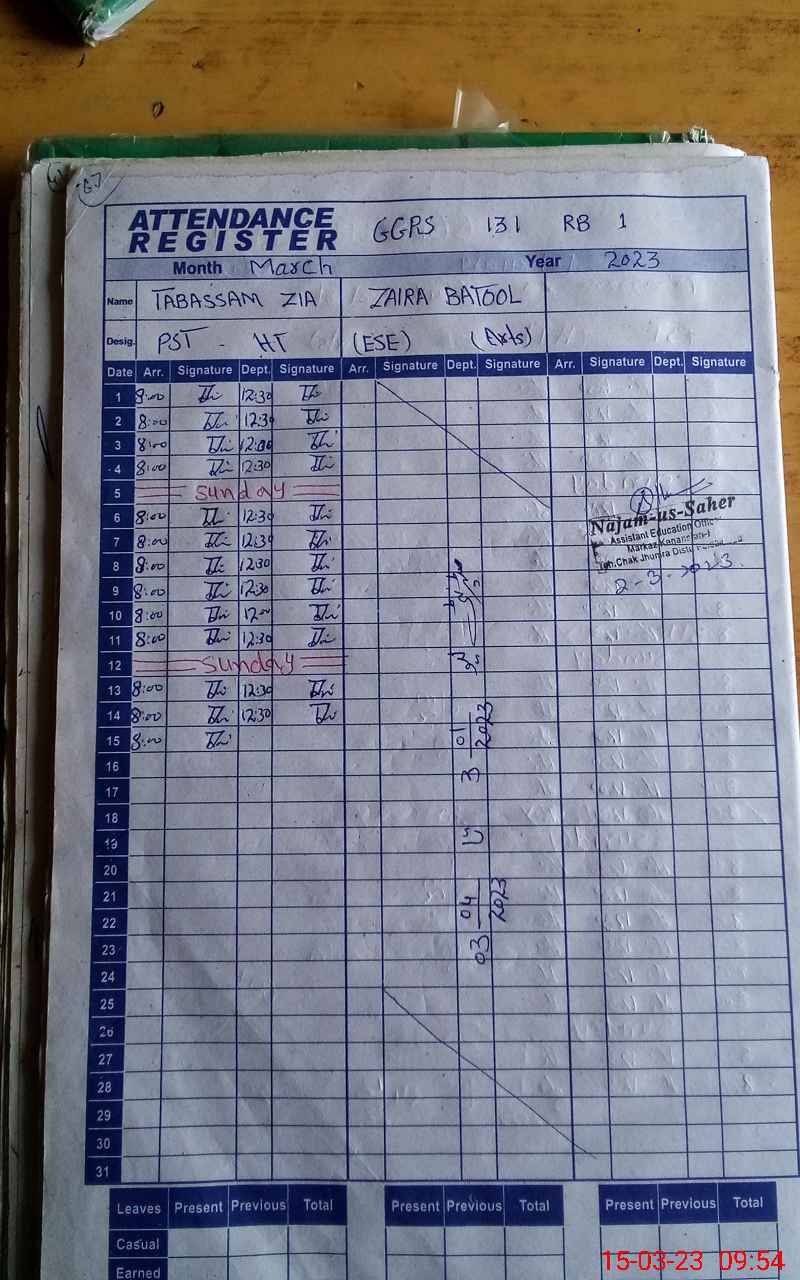 67
ATTENDANCE REGISTER GGPS 131 RB 1
Month March Year 2023
Name TABASSAM ZIA ZAIRA BATOOL
Desig. PST - HT (ESE) (Arts)
Date Arr. Signature Dept. Signature Arr. Signature Dept. Signature Arr. Signature Dept. Signature
1 8:00 12:30
2 8:00 12:30
3 8:00 12:30
4 8:00 12:30
5 Sunday
6 8:00 12:30
7 8:00 12:30
8 8:00 12:30
9 8:00 12:30
10 8:00 12:00
11 8:00 12:30
12 Sunday
13 8:00 12:30
14 8:00 12:30
15 8:00
16
17
18
19
20
21
22
23
24
25
26
27
28
29
30
31
Najam-us-Saher
Assistant Education Officer
Markaz
Teh.Chak Jhumra Distt.
2-3-2023
03 04 2023
3 01 2023
Leaves Present Previous Total Present Previous Total Present Previous Total
Casual
Earned
15-03-23 09:54